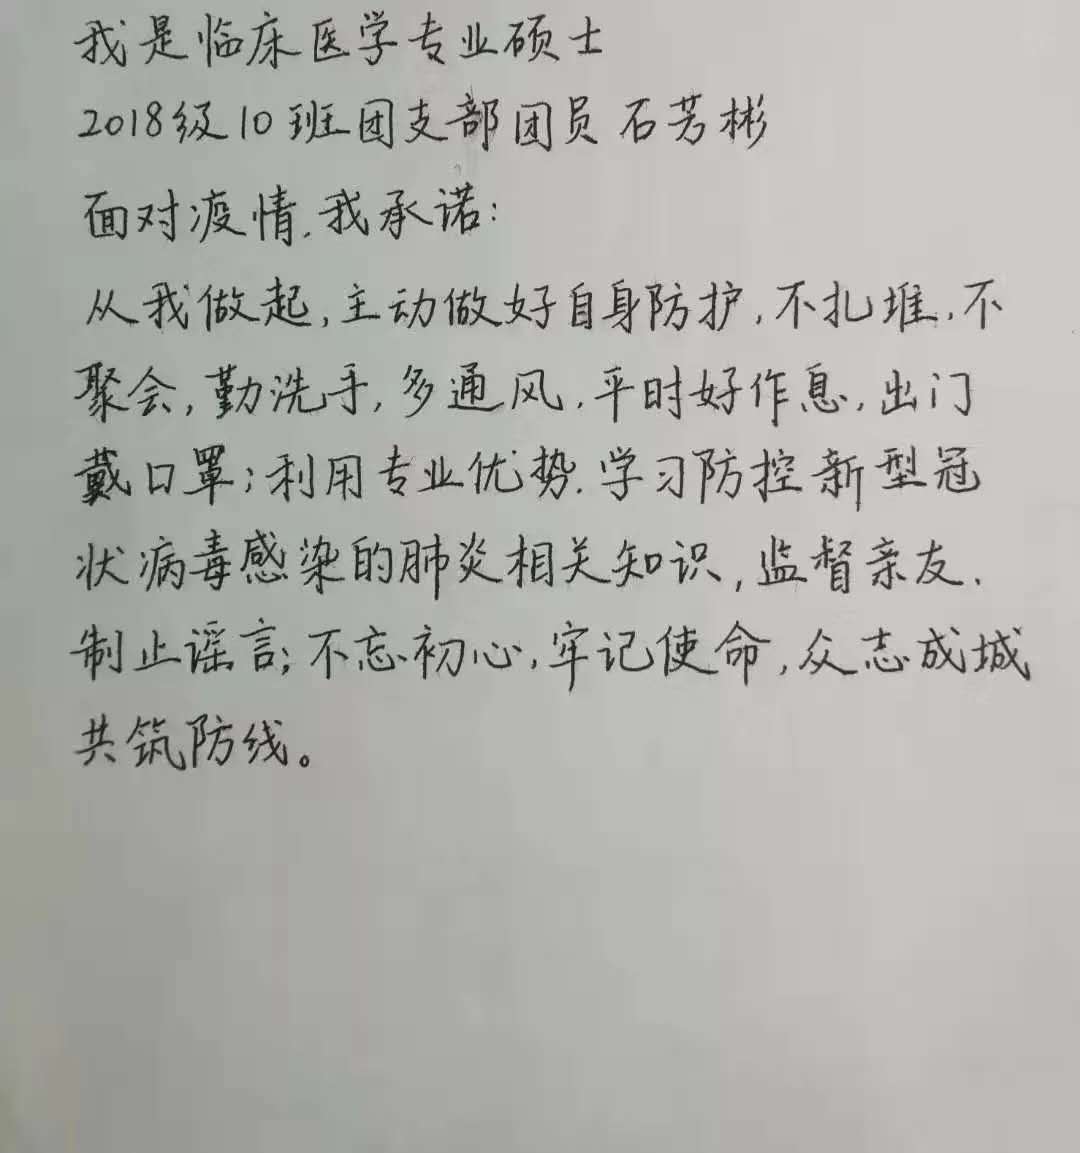 我是临床医学专业硕士
2018级10班团支部团员石芳彬
面对疫情.我承诺:
从我做起,主动做好自身防护,不扎堆,不
聚会,勤洗手,多通风,平时好作息,出门
戴口罩;利用专业优势.学习防控新型冠
状病毒感染的肺炎相关知识,监督亲友.
制止谣言;不忘初心,牢记使命,众志成城
共筑防线。